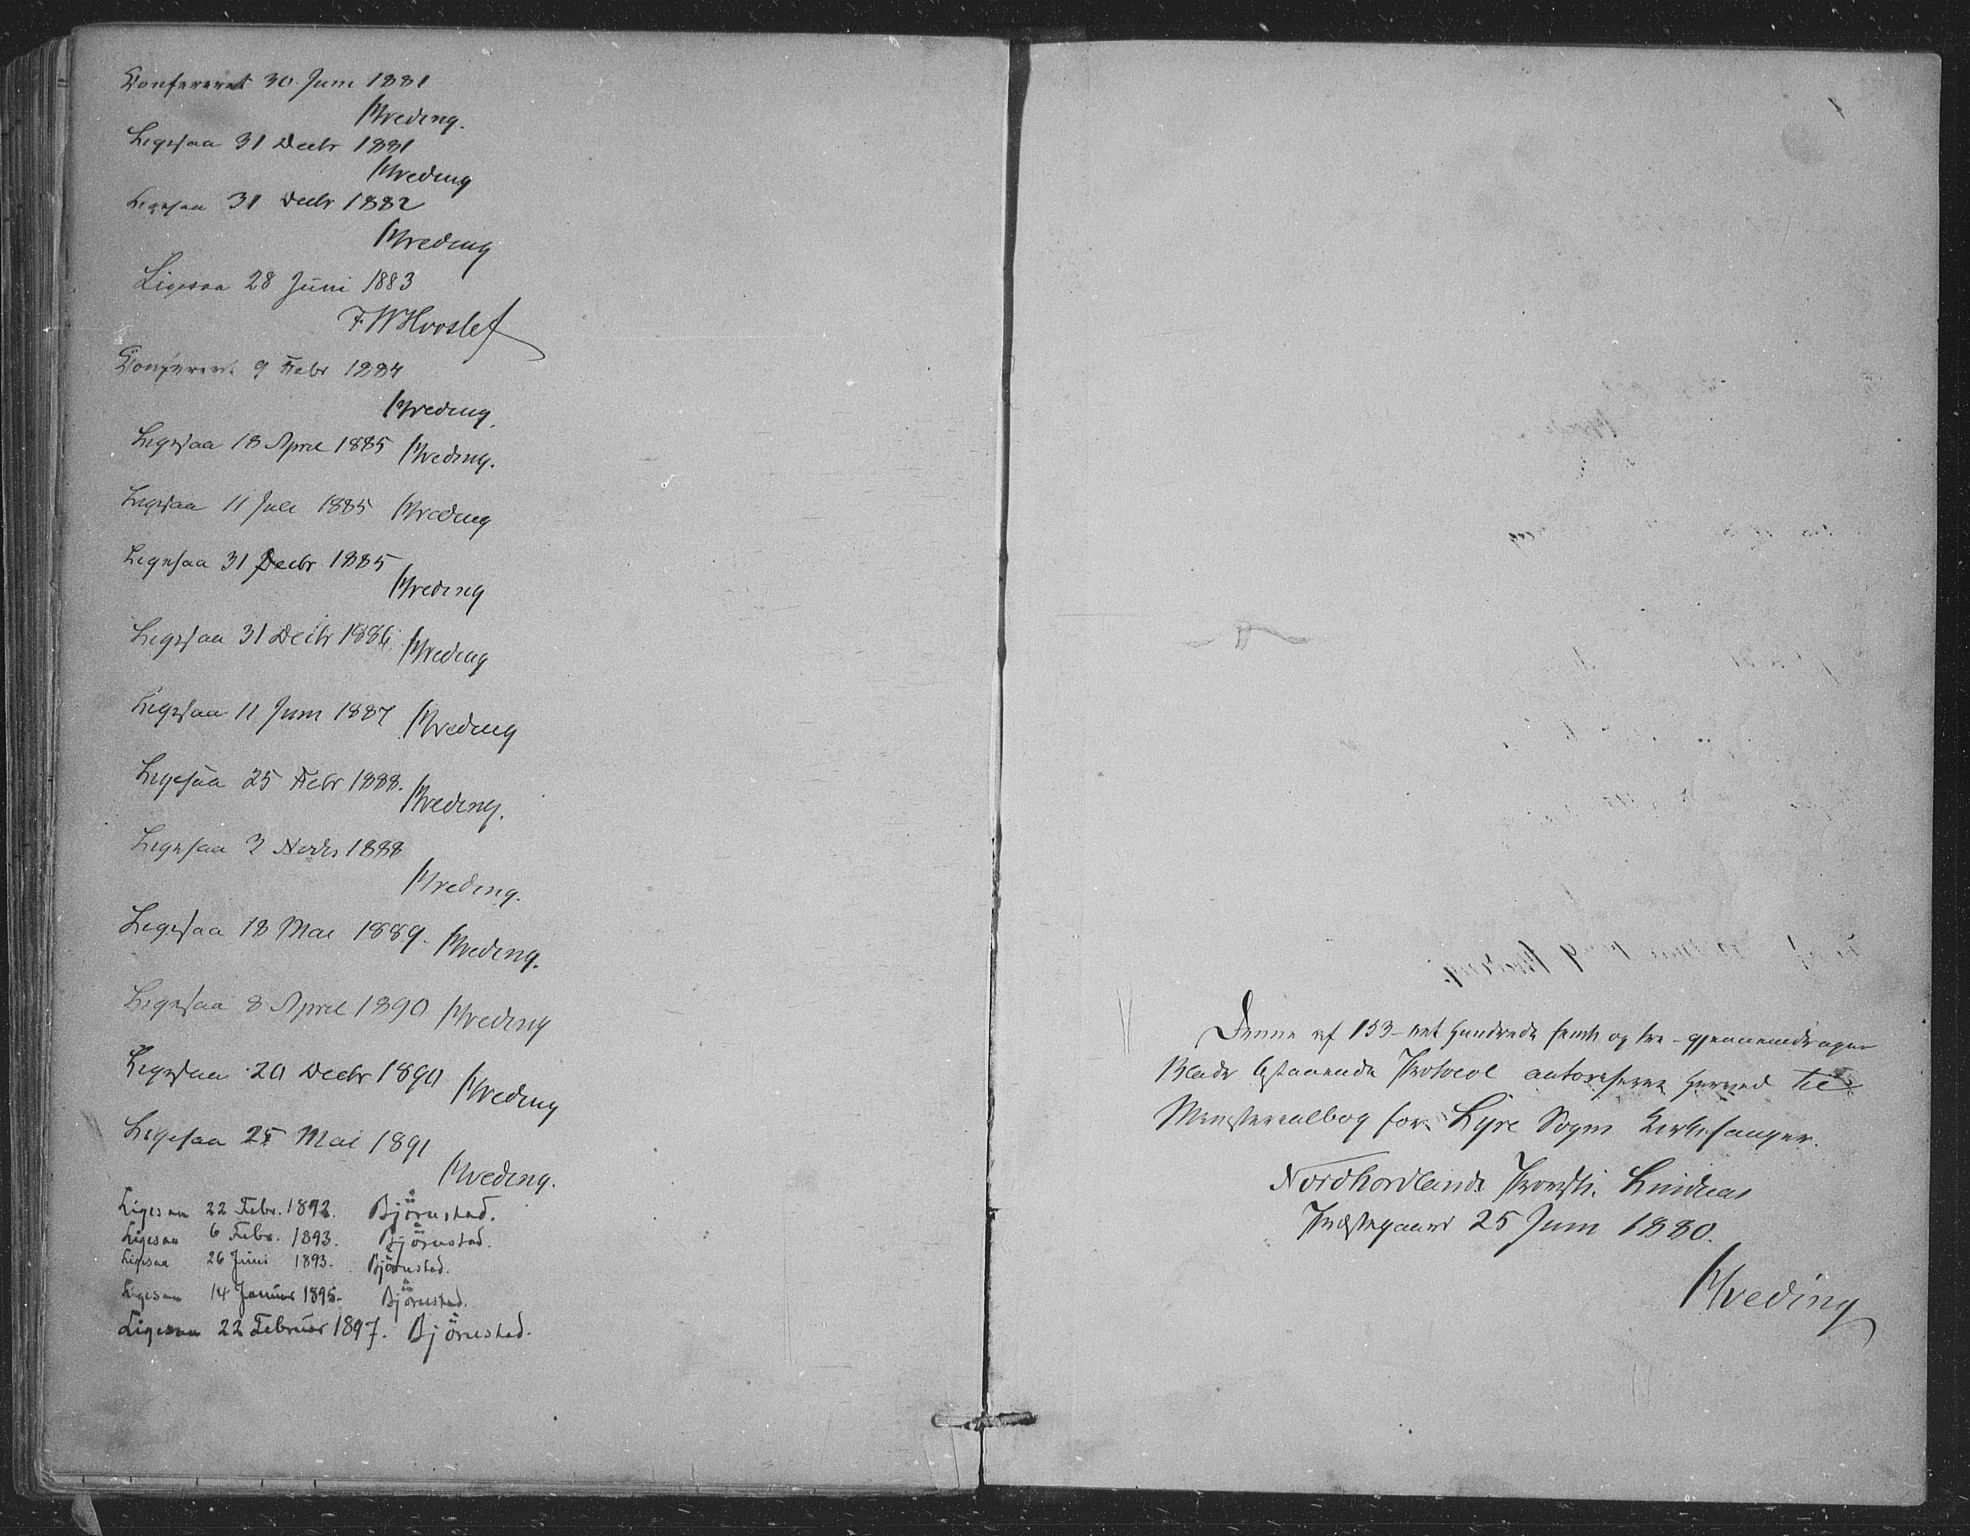 Confereret 30 Juni 1881
Hveding.
Ligesaa 31 Decbr 1881
Hveding
Ligesaa 31 Decbr 1882
Hveding
Ligesaa 28 Juni 1883
F. W Hvoslef
Confereret 9 Febr 1884
Hveding.
Ligesaa 18 April 1885 Hveding.
Ligesaa 11 Juli 1885 Hveding
Ligesaa 31 Decbr 1885
Hveding
Ligesaa 31 Decbr 1886 Hveding
Ligesaa 11 Juni 1887 Hveding
Ligesaa 25 Febr 1888. Hveding.
Ligesaa 3 Novbr 1888
Hveding.
Ligesaa 18 Mai 1889. Hveding.
Ligesaa 8 April 1890 Hveding
Ligesaa 20 Decbr 1890 Hveding
Ligesaa 25 Mai 1891
Hveding.
Ligesaa 22 Febr. 1892. Bjørnstad.
Ligesaa 6 Febr. 1893. Bjørnstad.
Ligesaa 26 Juni 1893. Bjørnstad.
Ligesaa 14 Januar 1895. Bjørnstad.
Ligesaa 22 Februar 1897. Bjørnstad.
Denne af 153 – et hundrede femti og tre – gjennemdragne
Blade bestaaende Protocol autoriseres herved til
Ministerialbog for Lyre Sogns Kirkesanger.
Nordhordlands Provsti. Lindaas
Præstegaard 25 Juni 1880.
Hveding